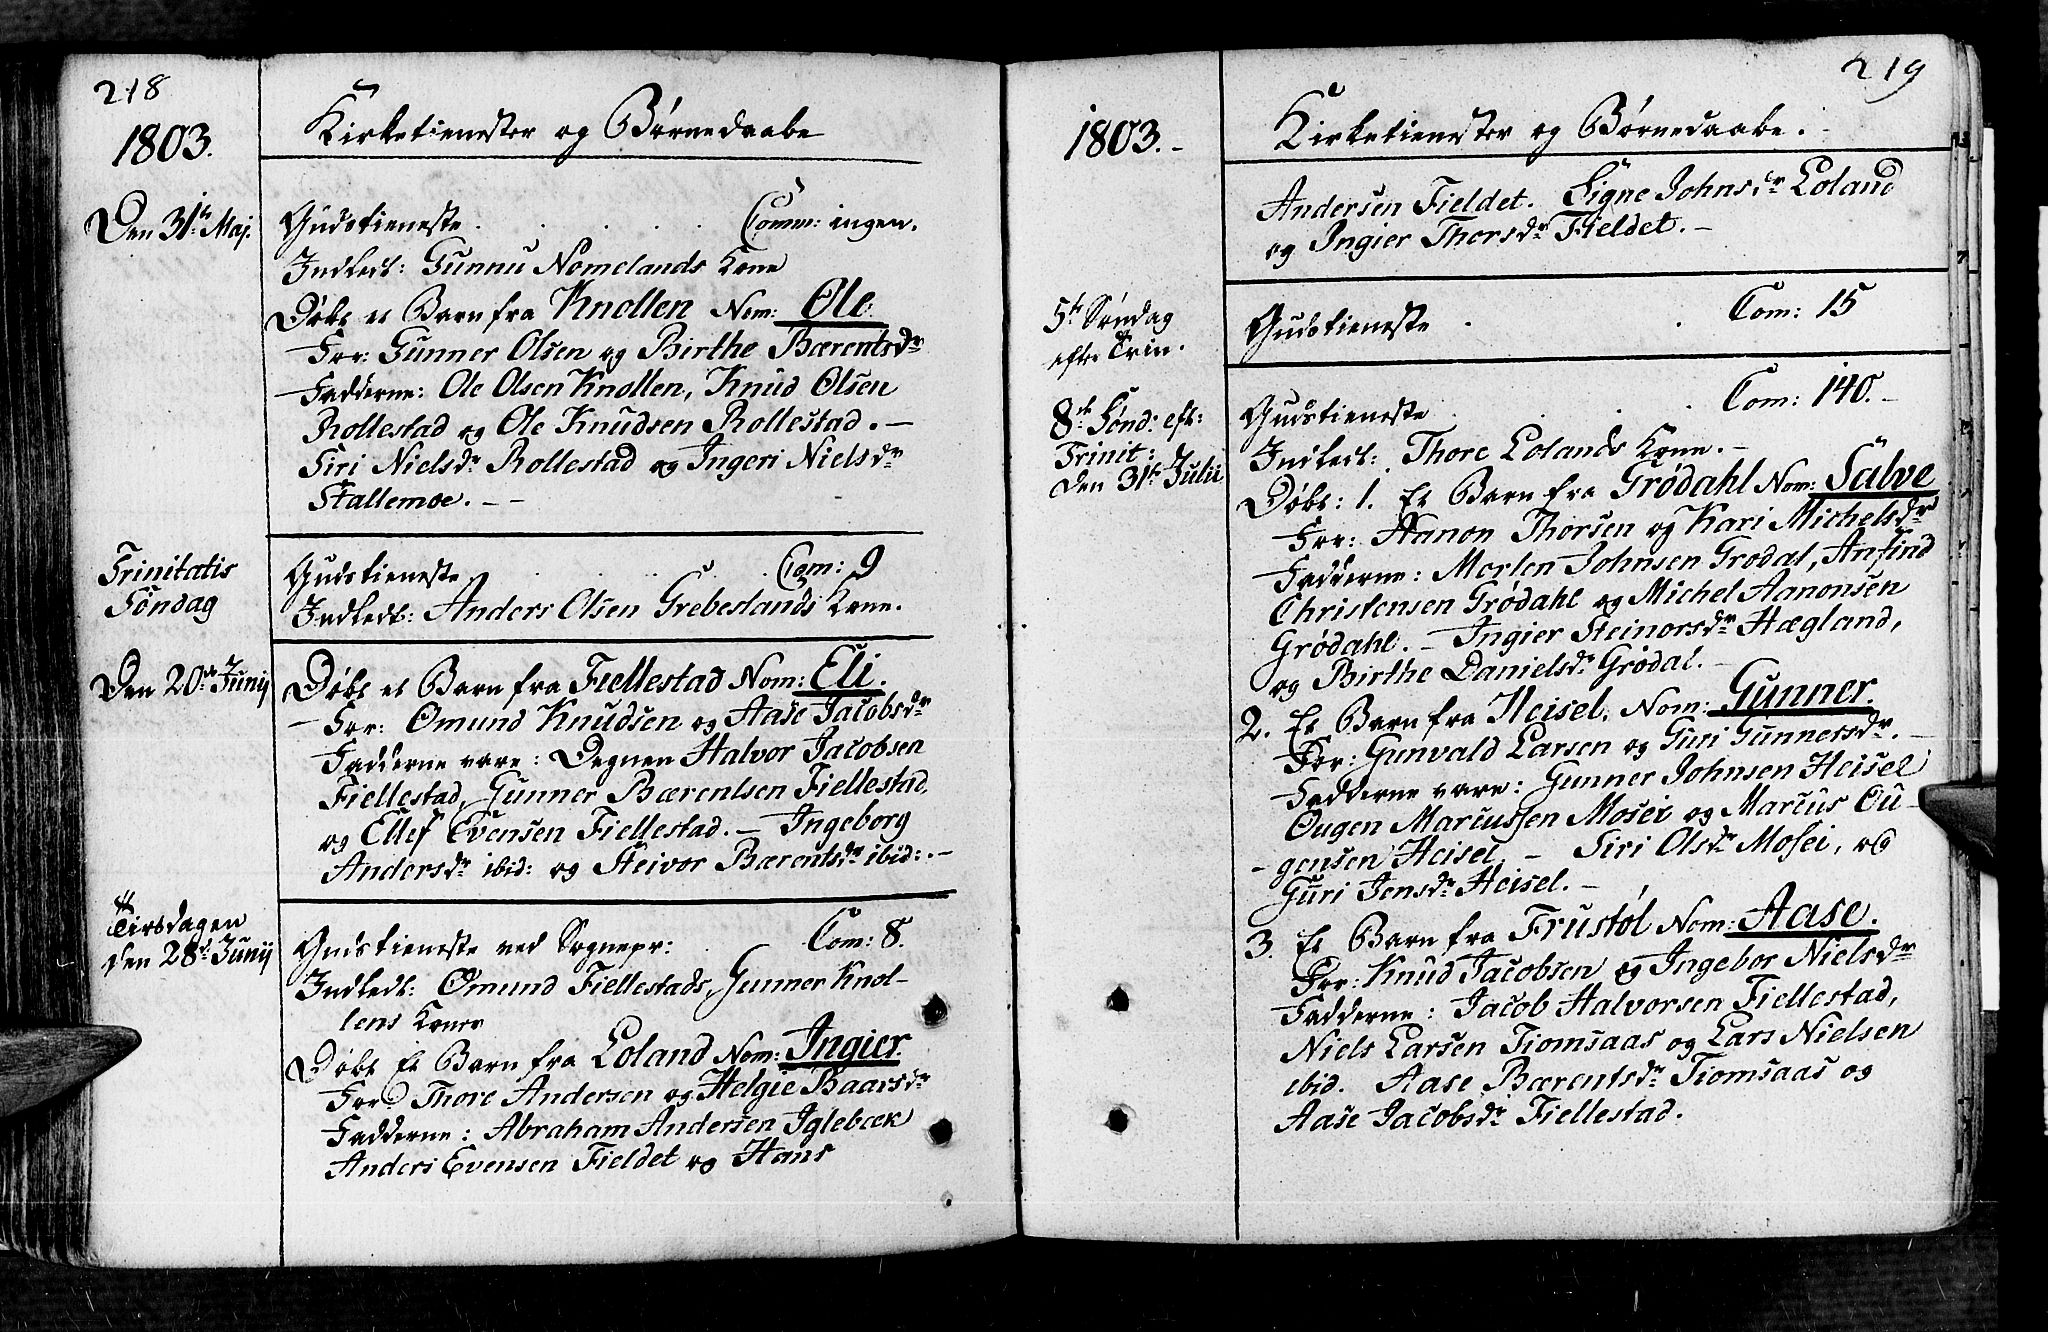 218
1803.
Kirketienester og Børnedaabe
Den 31te Maj.
Gudstieneste. . . . . Comm: ingen.
Indledt: Gunnu Nomelands Kone
Døbt et Barn fra Knollen Nom: Ole.
For: Gunner Olsen og Birthe Bærentsdr
Fadderne: Ole Olsen Knollen, Knud Olsen
Rollestad og Ole Knudsen Rollestad. —
Siri Nielsdr Rollestad og Ingeri Nielsdr
Stallemoe. - -
Trinitatis
Söndag
Gudstieneste . . . Com: 9
Indledt: Anders Olsen Grebestands Kone.
Den 20de Junij
Døbt et Barn fra Fiellestad Nom: Eli.
For: Omund Knudsen og Aase Jacobsdr
Fadderne vare: Degnen Halvor Jacobsen
Fiellestad, Gunner Bærentsen Fiellestad,
og Ellef Evensen Fiellestad. — Ingeborg
Andersdr ibid: og Steivor Bærentsdr ibid:. —
Tirsdagen
den 28de Junij
Gudstieneste ved Sognepr: . Com: 8.
Indledt: Omund Fiellestads, Gunner Knol-
lens Koner
Døbt Et Barn fra Loland Nom: Ingier.
For: Thore Andersen og Helgie Baarsdr
Fadderne: Abraham Andersen Iglebæk
Anders Evensen Fieldet og Hans
219
1803. -
Kirketienester og Børnedaabe. -
Andersen Fieldet. Signe Johnsdr Loland
og Ingier Thorsdr Fieldet. —
5te Søndag
efter Trin.
Gudstieneste . . Com: 15
8de Sönd: eft:
Trinit:
den 31te Julii
Gudstieneste . . Com: 140. -
Indledt: Thore Lolands Kone. —
Døbt: 1. Et Barn fra Grødahl Nom: Salve
For: Aanon Thorsen og Kari Michelsdr
Fadderne: Morten Johnsen Grodal, Anfind
Christensen Grødahl og Michel Aanonsen
Grødahl. — Ingier Steinorsdr Hægland,
og Birthe Danielsdr Grødal. —
2. Et Barn fra Heisel. Nom: Gunner.
For: Gunvald Larsen og Guri Gunnersdr. —
Fadderne vare: Gunner Johnsen Heisel
Ougen Marcussen Mosei og Marcus Ou-
gensen Heisel. — Siri Olsdr Mosei, og
Guri Jensdr Heisel. —
3. Et Barn fra Frustøl Nom: Aase.
For: Knud Jacobsen og Ingebor Nielsdr
Fadderne: Jacob Halvorsen Fiellestad,
Niels Larsen Tiomsaas og Lars Nielsen
ibid. Aase Bærentsdr Tiomsaas og
Aase Jacobsdr Fiellestad.